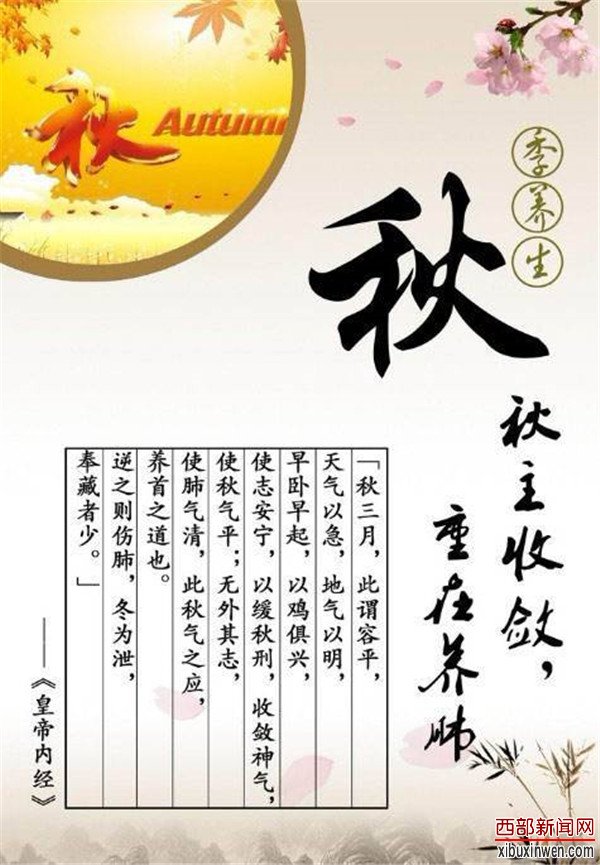 秋 Autumn
秋
季养生
秋主收敛，
重在养肺
「秋三月，此谓容平，
天气以急，地气以明，
早卧早起，以鸡俱兴，
使志安宁，以缓秋刑，收敛神气，
使秋气平；无外其志，
使肺气清，此秋气之应，
养首之道也。
逆之则伤肺，冬为泄，
奉藏者少。」
——《皇帝内经》
西部新闻网
xibuxinwen.com